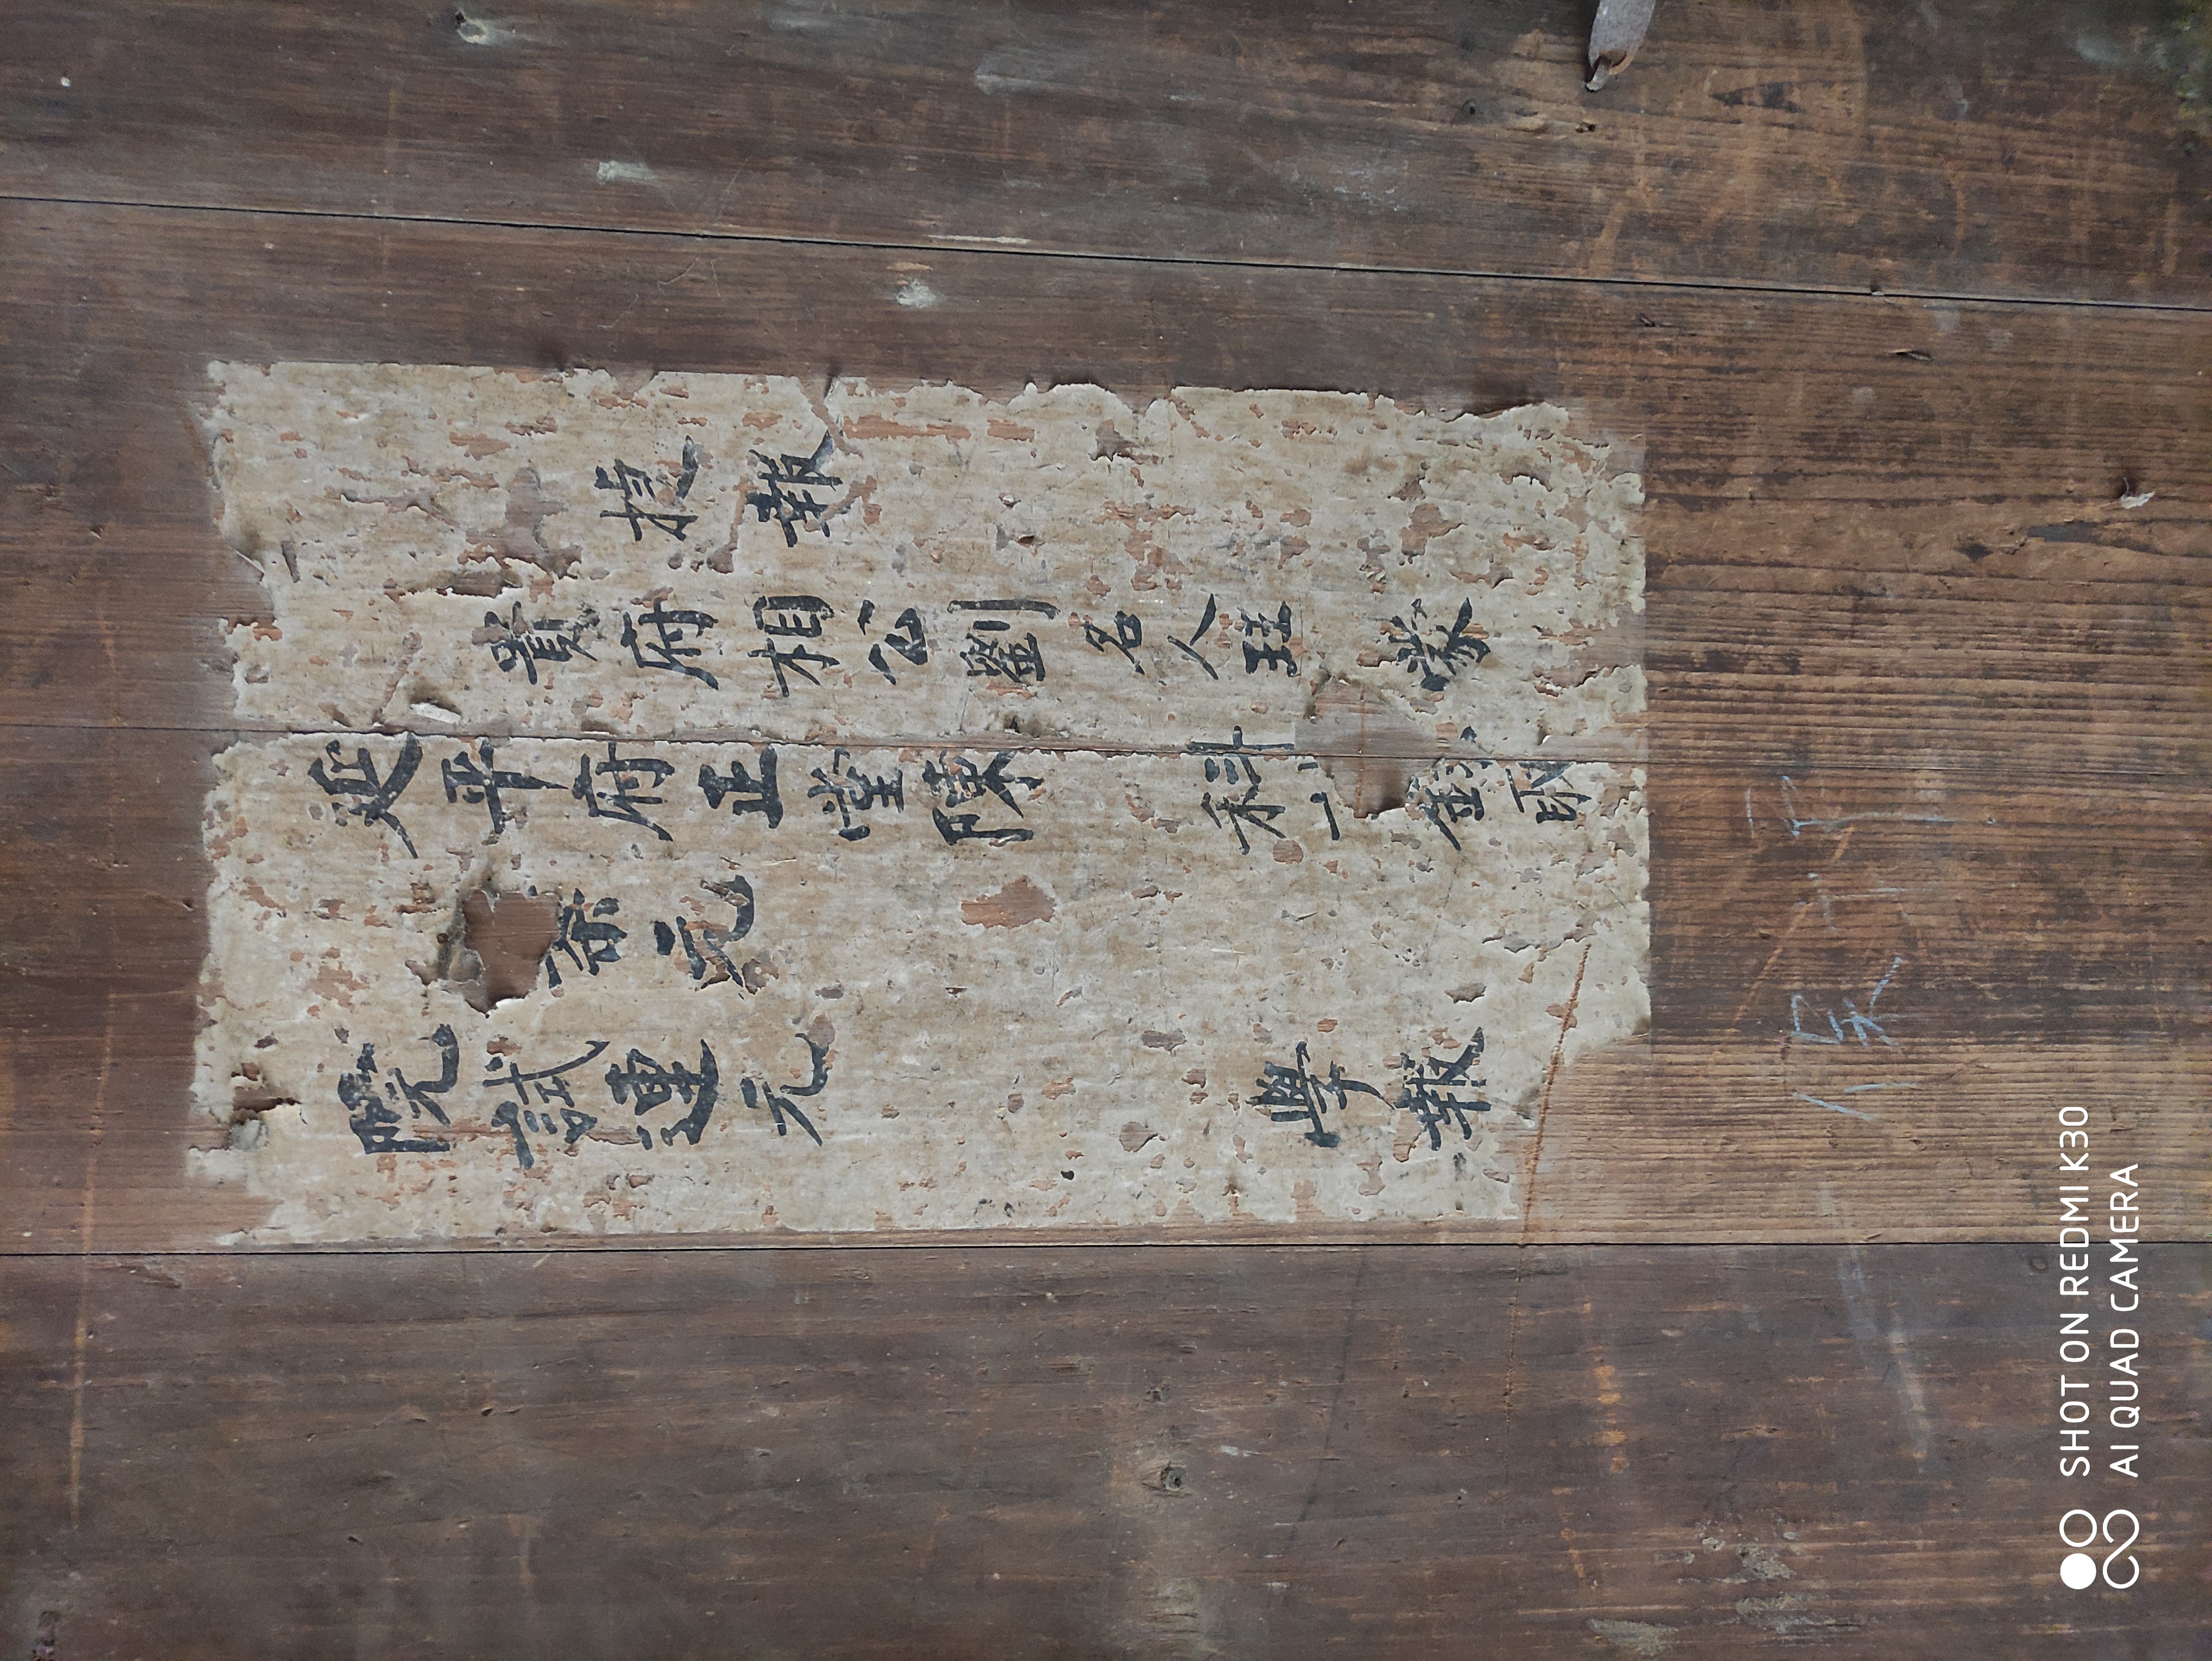 捷報
貴府相公劉名人玨 蒙
延平府正堂陳 科 一 錄取
宗元
院試連元
學報
SHOT ON REDMI K30
AI QUAD CAMERA